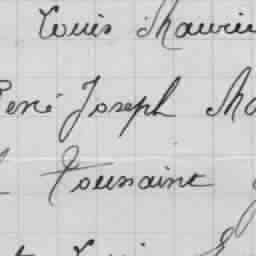 Louis Mauric
René Joseph Ma
Toussaint